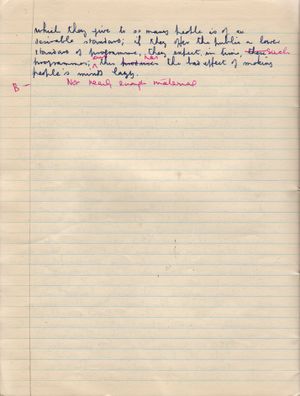 which they give to so many people is of a
desirable standard; if they offer the public a lower
standard of programme, they expect, in time, such
programmes; and this has the bad effect of making
people's minds lazy.
B - Not nearly enough material